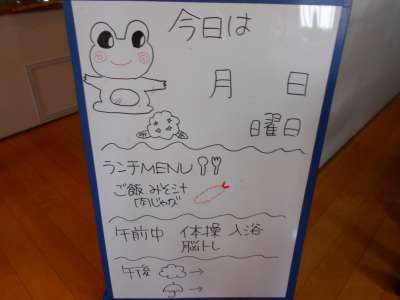 今日は
月 日
曜日
ランチMENU
ご飯 みそ汁
肉じゃが
午前中 体操 入浴
脳トレ
午後 →
→